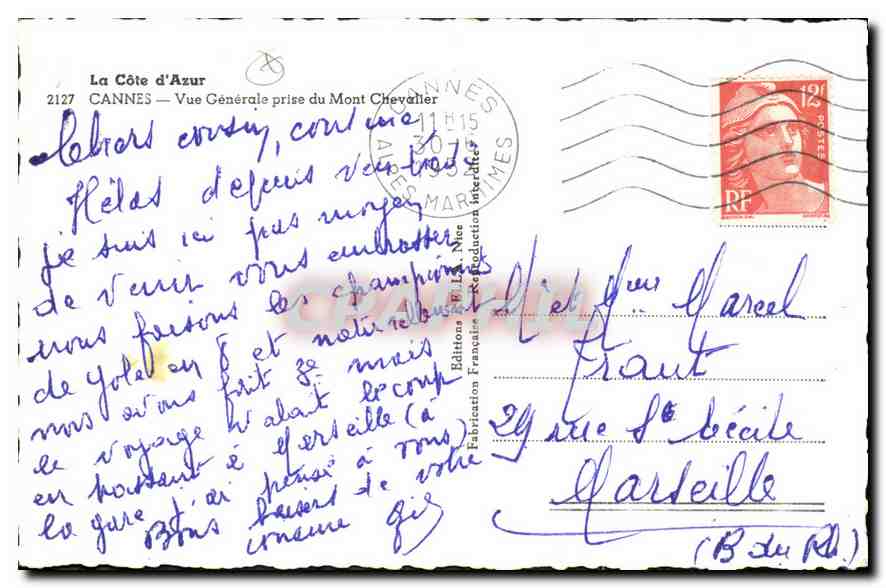 La Côte d'Azur
2127 CANNES — Vue Générale prise du Mont Chevalier
Chers cousin, cousine
Hélas depuis vendredi
je suis ici pas moyen
de venir vous embrasser
nous faisons les championnats
de yole en 8 et naturellement
nous avons fait 3e mais
le voyage valait le coup
en passant à Marseille (à
la gare j'ai pensé à vous)
Bons baisers de votre
cousine
CANNES
11H15
30-
1952
ALPES MARITIMES
12F
POSTES
RF
Editions ELLA, Nice
Fabrication Française - Reproduction Interdite
CPAPHIL
Mr et Mme Marcel
Traut
29 rue Ste Cécile
Marseille
(B du Rh)